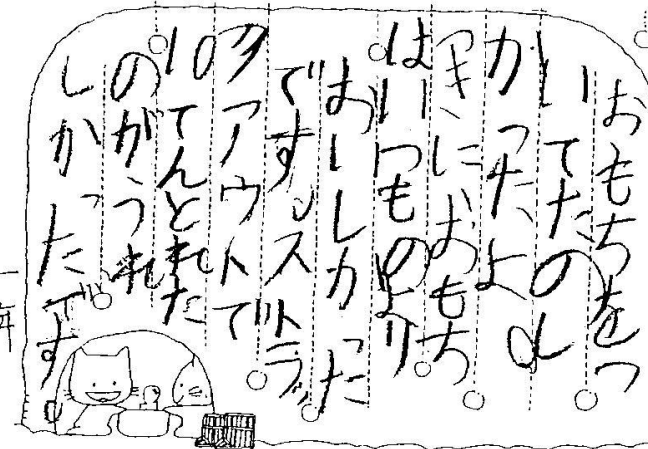 おもちをつ
いてたのし
かったよ
つきにおもち
はいつものより
おいしかった
です。ストラッ
クアウトで
10てんとれた
のがうれ
しかったです
一年